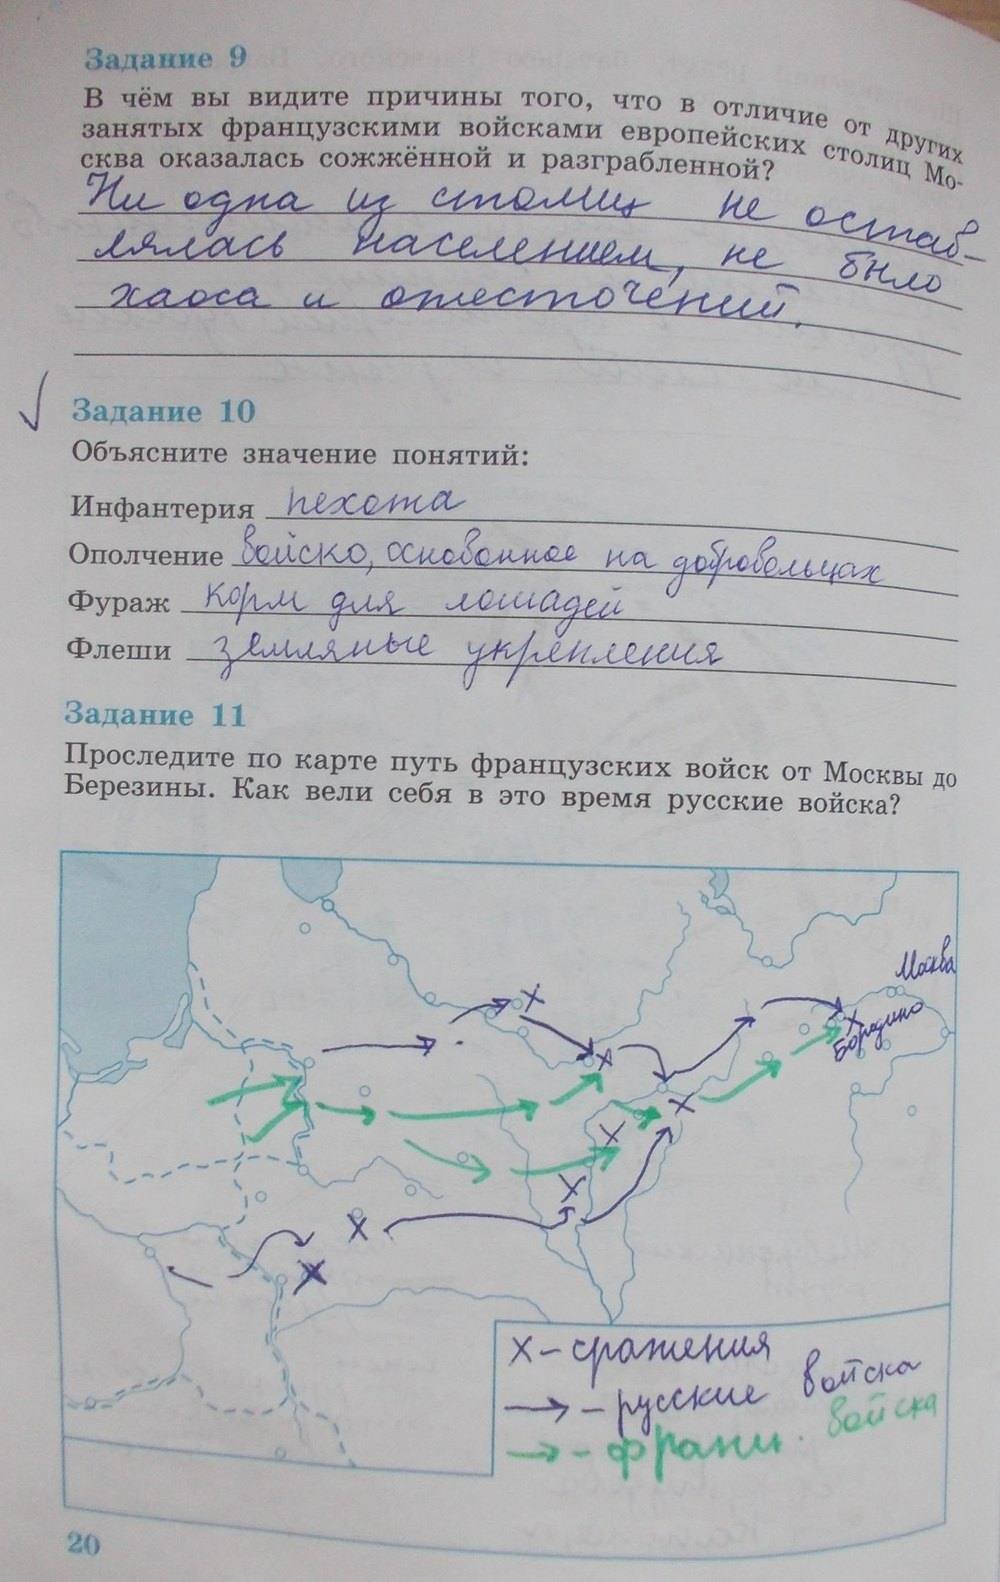 Задание 9
В чём вы видите причины того, что в отличие от других
занятых французскими войсками европейских столиц Мо-
сква оказалась сожжённой и разграбленной?
Ни одна из столиц не остав-
лялась населением, не было
хаоса и ожесточений.
Задание 10
Объясните значение понятий:
Инфантерия пехота
Ополчение войско, основонное на добровольцах
Фураж корм для лошадей
Флеши земляные укрепления
Задание 11
Проследите по карте путь французских войск от Москвы до
Березины. Как вели себя в это время русские войска?
Москва
Бородино
х – сражения
→ – русские войска
→ – франц. войска
20